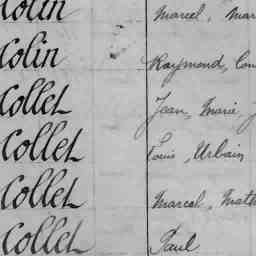 Colin Marcel, Mar
Colin Raymond, Con
Collet Jean, Marie, J
Collet Louis, Urbain
Collet Marcel, Math
Collet Paul